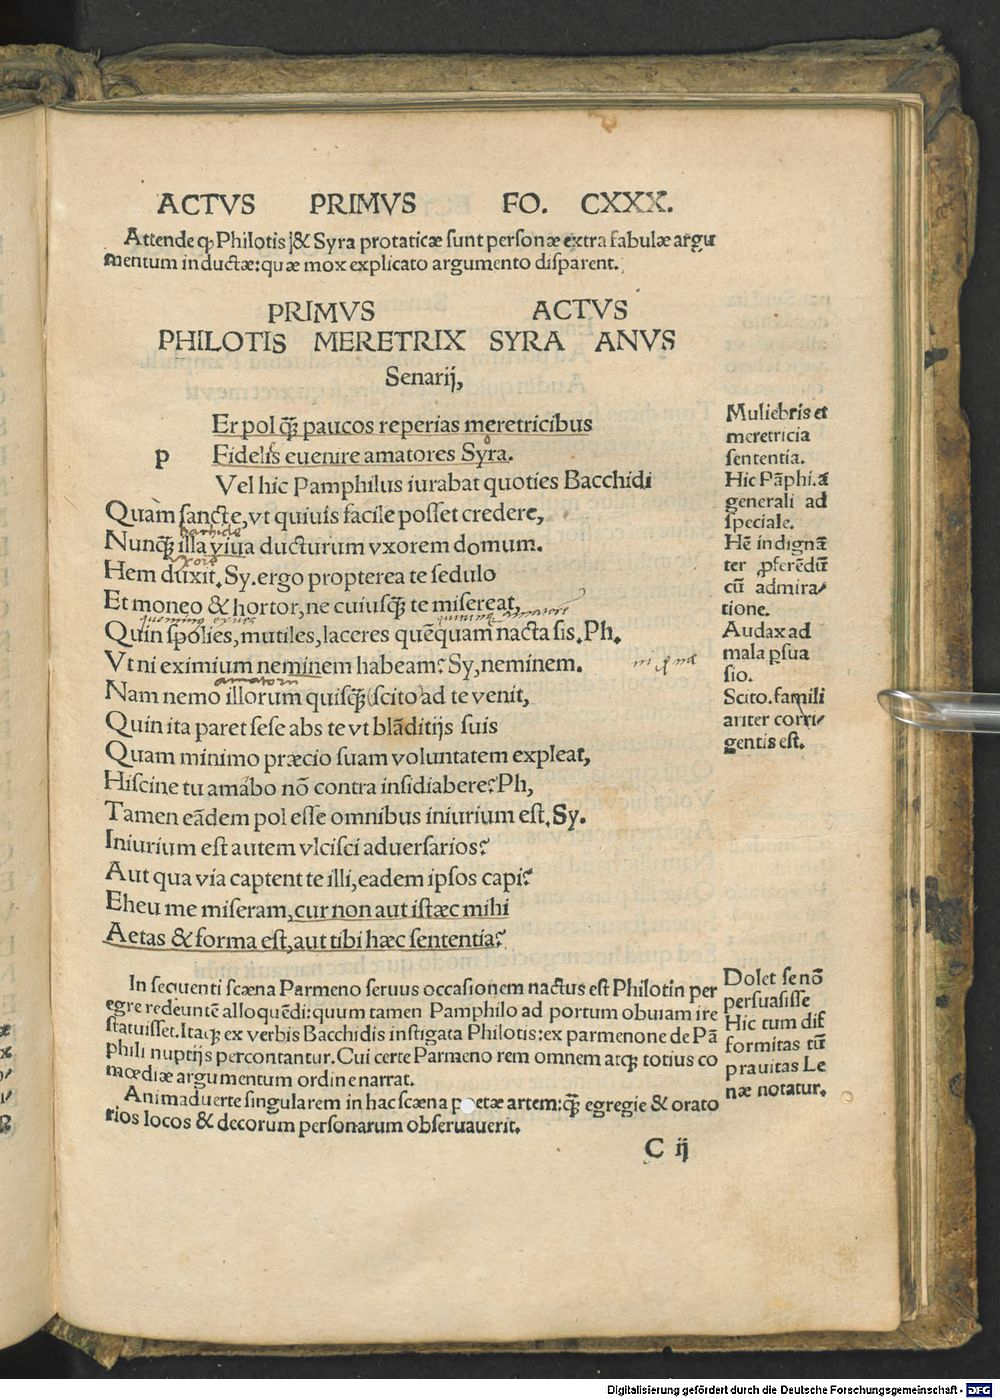 ACTVS PRIMVS FO. CXXX.
Attende ꝙ Philotis & Syra protaticæ sunt personæ extra fabulæ argu
mentum inductæ: quæ mox explicato argumento disparent.
PRIMVS ACTVS
PHILOTIS MERETRIX SYRA ANVS
Senarij,
Er pol q̃ꝫ paucos reperias meretricibus
p Fidelis euenire amatores Syra.
Vel hic Pamphilus iurabat quoties Bacchidi
Quam sancte, vt quiuis facile posset credere,
Nunq̃ꝫ illa viua ducturum vxorem domum.
vxorē
Hem duxit. Sy. ergo propterea te sedulo
Et moneo & hortor, ne cuiusq̃ꝫ te misereat,
Quin spolies, mutiles, laceres quēquam nacta sis. Ph.
Vt ni eximium neminem habeam? Sy, neminem.
Nam nemo illorum quisq̃ꝫ (scito) ad te venit,
Quin ita paret sese abs te vt blāditijs suis
Quam minimo præcio suam voluntatem expleat,
Hiscine tu amabo nō contra insidiabere? Ph,
Tamen eādem pol esse omnibus iniurium est. Sy.
Iniurium est autem vlcisci aduersarios?
Aut qua via captent te illi, eadem ipsos capi?
Eheu me miseram, cur non aut istæc mihi
Aetas & forma est, aut tibi hæc sententia?
Muliebris et
meretricia
sententia.
Hic Pāphi. ā
generali ad
speciale.
Hē indignā
ter ꝓferēdū
cū admira/
tione.
Audax ad
mala ꝑsua
sio.
Scito. famili
ariter corri/
gentis est.
In sequenti scæna Parmeno seruus occasionem nactus est Philotin per
egre redeuntē alloquēdi: quum tamen Pamphilo ad portum obuiam ire
statuisset. Itaqꝫ ex verbis Bacchidis instigata Philotis: ex parmenone de Pā
phili nuptijs percontantur. Cui certe Parmeno rem omnem atqꝫ totius co
mœdiæ argumentum ordine narrat.
Animaduerte singularem in hac scæna poetæ artem: q̃ꝫ egregie & orato
rios locos & decorum personarum obseruauerit.
Dolet se nō
persuasisse
Hic tum dif
formitas tū
prauitas Le
næ notatur.
C ij
Digitalisierung gefördert durch die Deutsche Forschungsgemeinschaft - DFG